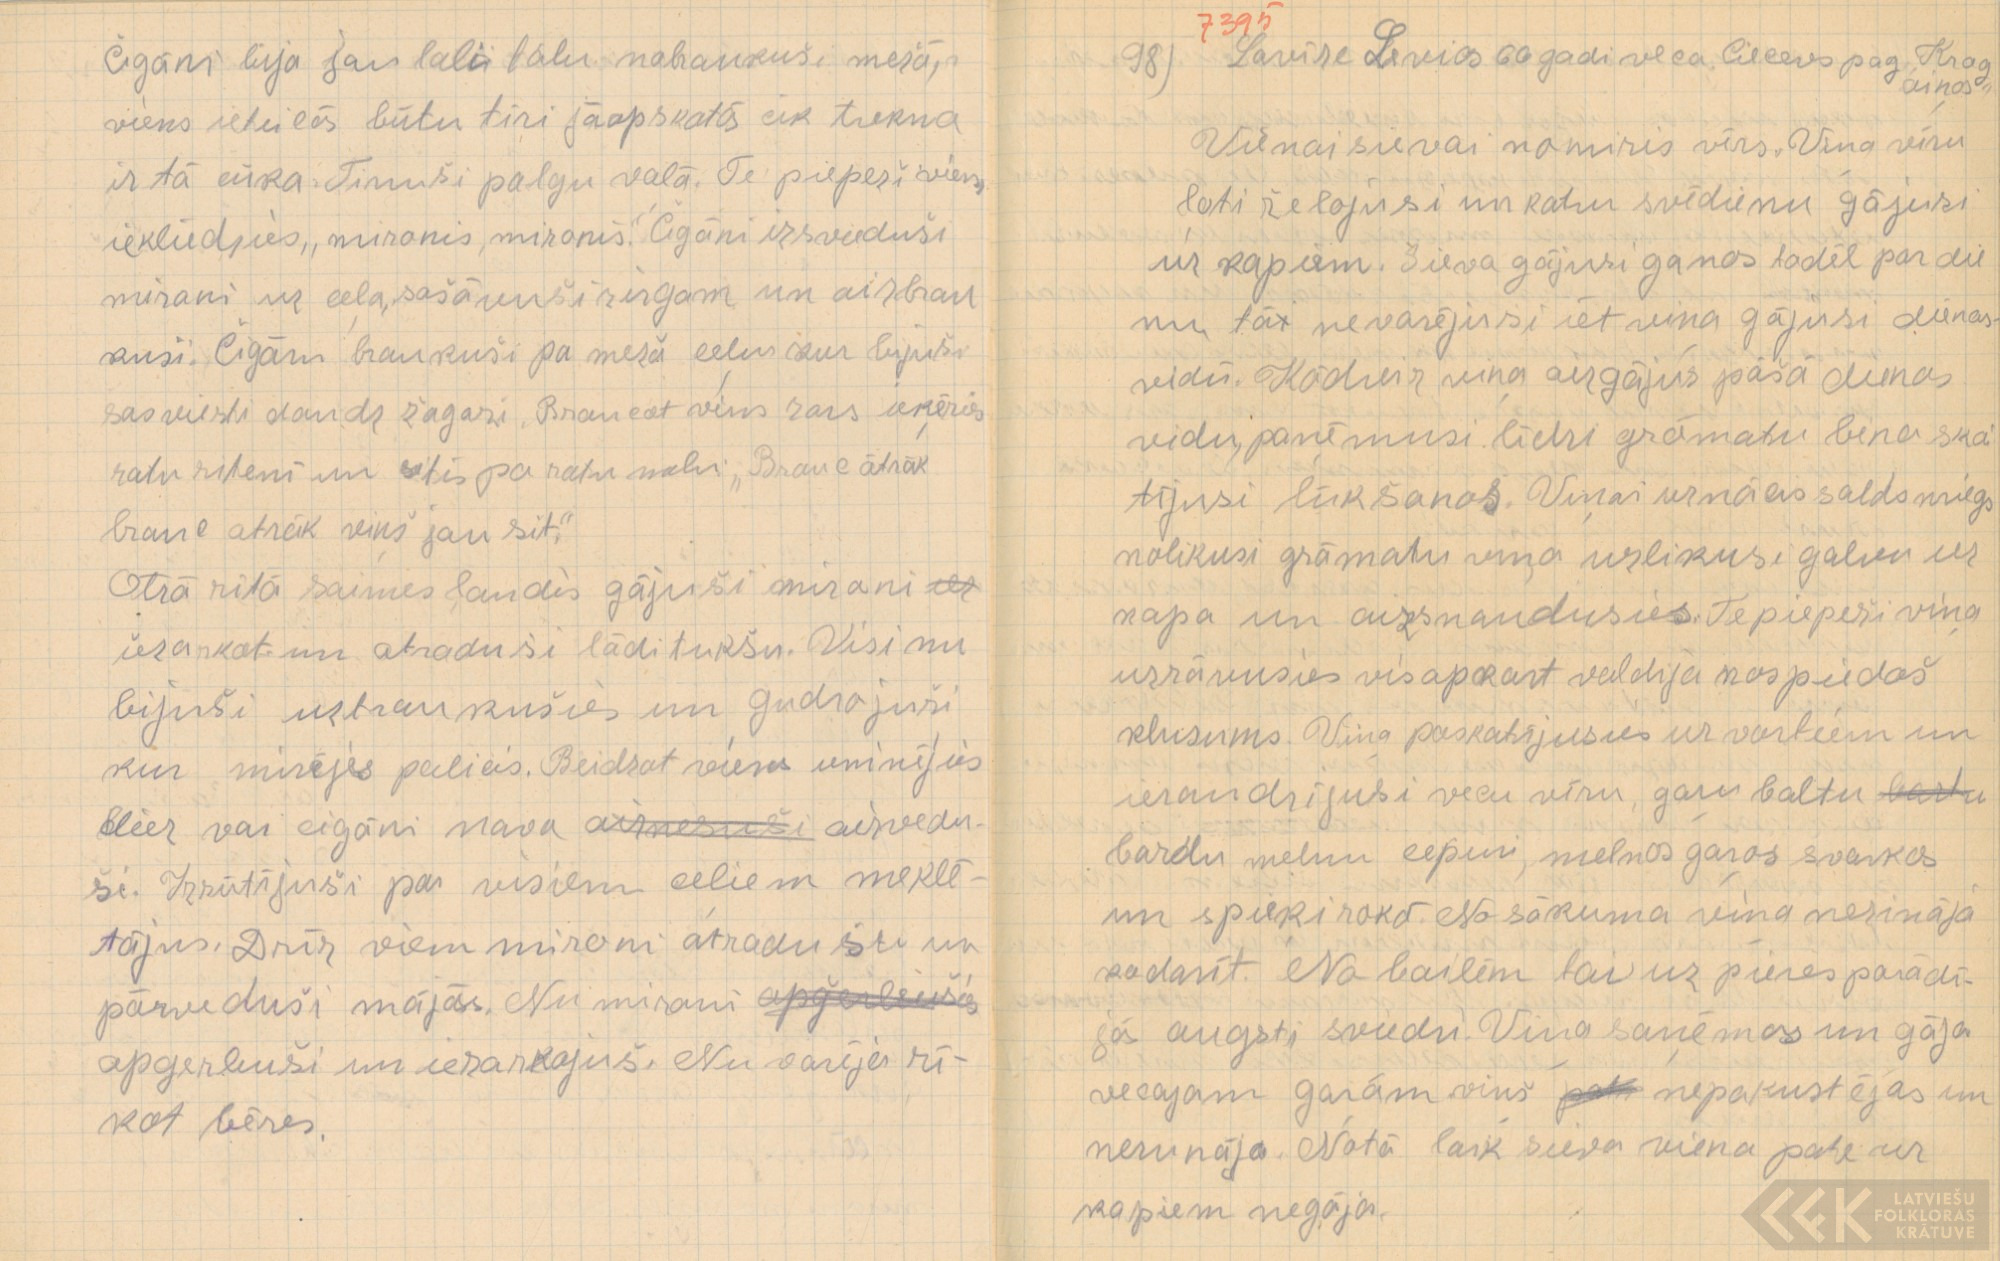 Čigāni bija jau labi tālu nobraukuši mežā,
viens ieteicās būtu tiri jāapskatās cik trekna
ir tā cūka. Tinuši palgu vaļā. Te piepeži viens
iekliedzies „mironis, mironis." Čigāni izsvieduši
mironi uz ceļa, sašāvuši zirgam un aizbrau
kuši. Čigāni braukuši pa mežā ceļu kur bijuši
sasviesti daudz žagari. Braucot viens zars ieķēries
ratu riteni un sitis pa ratu malu „Brauc ātrāk
brauc atrāk viņš jau sit."
Otrā rītā saimes ļaudis gājuši mironi uz
iezarkot un atraduši lādi tukšu. Visi nu
bijuši uztraukušies un gudrojuši
kur mirējs palicis. Beidzot viens ieminējies
vai cigāni nava aiznesuši aizvedu-
ši. Izsūtījuši pa visiem ceļiem meklē-
tājus. Drīz vien mironi atraduši un
pārveduši mājās. Nu mironi apģerbušies
apgerbuši un iezarkojuš. Nu varēja rī-
kot bēres.
7395
98) Lavīze Levics 60 gadi veca, Cieceres pag. „Krog
aiņos"
Vienai sievai nomiris vīrs. Viņa vīru
ļoti želojusi un katu svēdienu gājusi
uz kapiem. Sieva gājusi ganos tadēļ par die
nu tāx nevarējusi iet viņa gājusi dienas-
vidū. Kādreiz viņa aizgājus pašā dienas
vidu, paņēmusi līdzi grāmatu bena ska
tījusi lūkšanas. Viņai uznācis salds miegs
nolikusi grāmatu viņa uzlikusi galvu uz
kapa un aizsnaudusies. Te piepeži viņa
uzrāvusies visapkart valdija nospiedoš
klusums. Viņa paskatījusies uz vartiem un
ieraudzījusi vecu vīru, garu baltu bartu
bardu melnu cepuri, melnos gaŗos svarkos
un spieki rokā. No sākuma viņa nezināja
kodarīt. No bailēm tai uz pieres parādi-
jās augsti sviedri. Viņa saņēmas un gāja
vecajam garām viņš nepakustējas un
nerunāja. No tā laik sieva viena pate uz
kapiem negāja.
LATVIEŠU
FOLKLORAS
KRĀTUVE